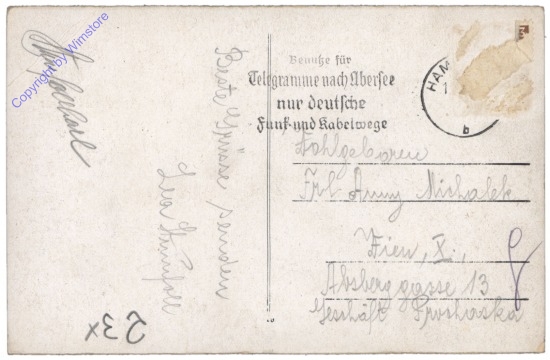 Copyright by Wimstore
Beste Grüsse senden
Benutze für
Telegramme nach Übersee
nur deutsche
Funk- und Kabelwege
HAM
1
b
Wohlgeboren
Frl. Anny Michalek
Wien, X.,
Absberggasse 13
Geschäft Prochaska